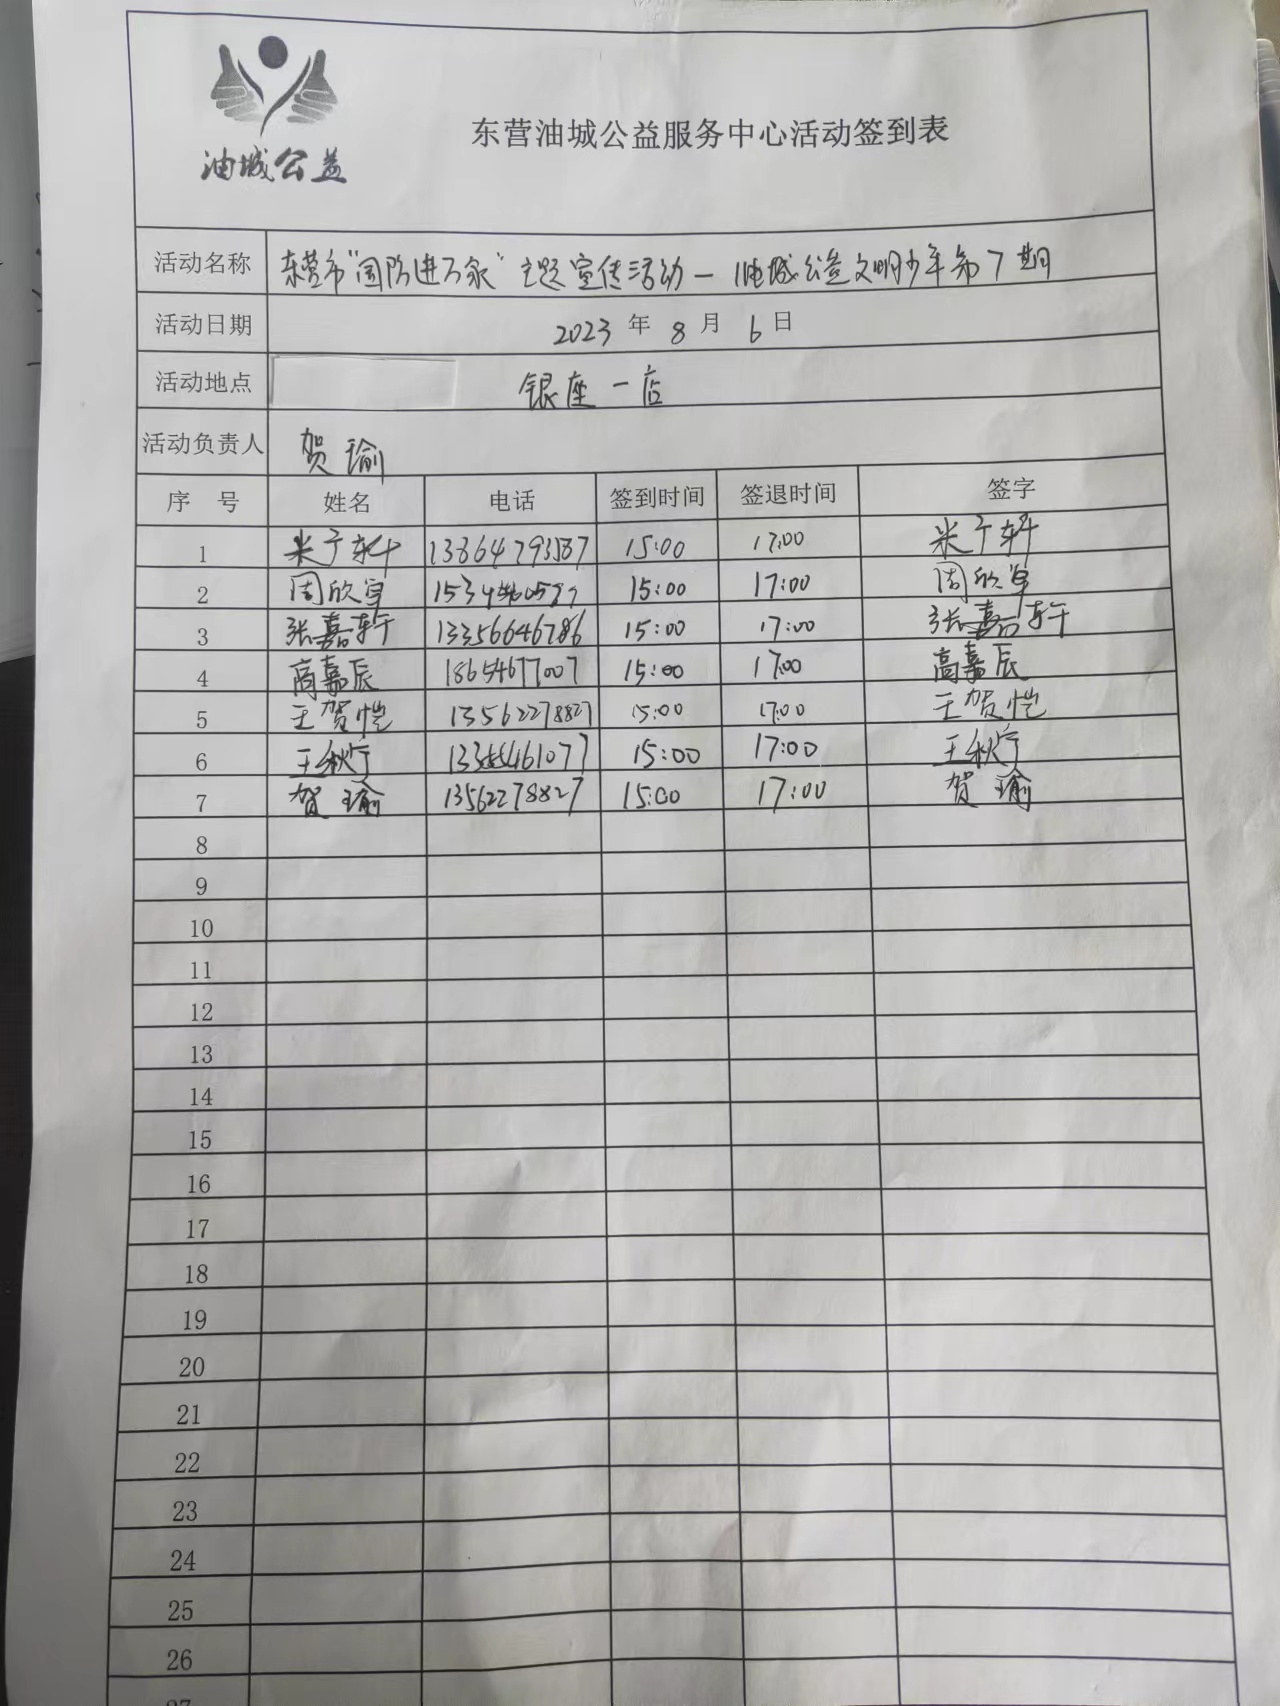 油城公益
东营油城公益服务中心活动签到表
活动名称 东营市"国防进万家"主题宣传活动—油城公益文明少年第7期
活动日期 2023年8月6日
活动地点 银座一店
活动负责人 贺瑜
序号 姓名 电话 签到时间 签退时间 签字
1 米子轩 13864793587 15:00 17:00 米子轩
2 周欣宇 15:00 17:00 周欣宇
3 张嘉轩 13356646786 15:00 17:00 张嘉轩
4 高嘉辰 18654677007 15:00 17:00 高嘉辰
5 王贺恺 13562278827 15:00 17:00 王贺恺
6 王秋宁 15:00 17:00 王秋宁
7 贺瑜 13562278827 15:00 17:00 贺瑜
8
9
10
11
12
13
14
15
16
17
18
19
20
21
22
23
24
25
26
27